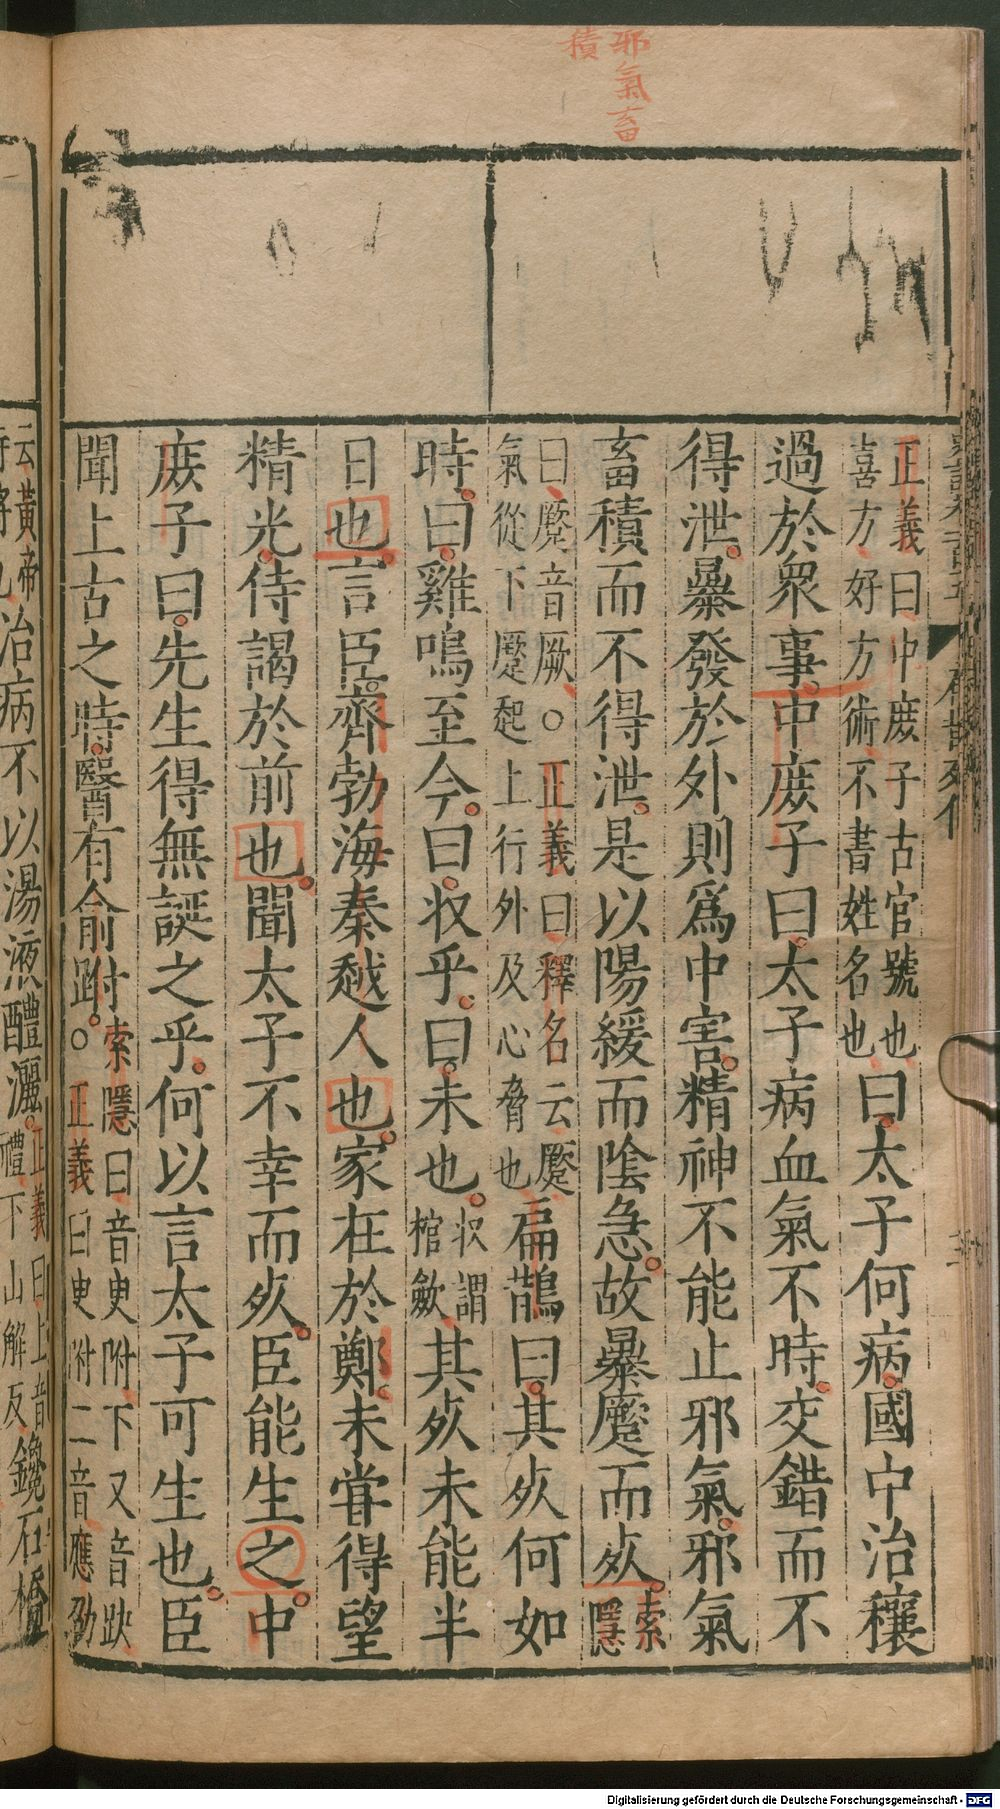 邪氣畜
積
正義曰中庶子古官號也
喜方好方術不書姓名也
曰太子何病國中治穰
過於衆事中庶子曰太子病血氣不時交錯而不
得泄暴發於外則爲中害精神不能止邪氣邪氣
畜積而不得泄是以陽緩而陰急故暴蹷而死
索
隱
曰蹷音厥○正義曰釋名云蹷
氣從下蹷起上行外及心脅也
扁鵲曰其死何如
時曰雞鳴至今曰收乎曰未也
收謂
棺斂
其死未能半
日也言臣齊勃海秦越人也家在於鄭未嘗得望
精光侍謁於前也聞太子不幸而死臣能生之中
庶子曰先生得無誕之乎何以言太子可生也臣
聞上古之時醫有俞跗
索隱曰音臾附下又音趺
○正義曰臾附二音應劭
云黃帝
時將也
治病不以湯液醴灑
正義曰上音
禮下山解反
鑱石橋
Digitalisierung gefördert durch die Deutsche Forschungsgemeinschaft - DFG